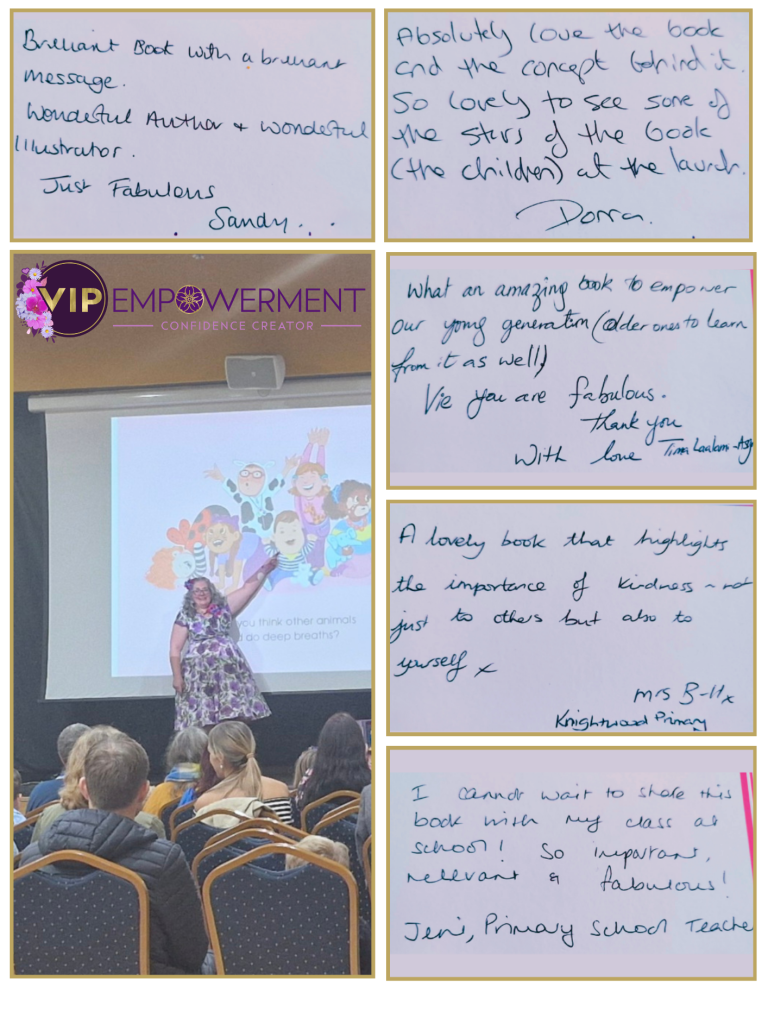 Brilliant Book with a brilliant
message.
Wonderful Author + wonderful
Illustrator.
Just Fabulous
Sandy...
Absolutely love the book
and the concept behind it.
So lovely to see some of
the stars of the book
(the children) at the launch.
Donna.
VIP EMPOWERMENT
CONFIDENCE CREATOR
you think other animals
do deep breaths?
What an amazing book to empower
our young generation (older ones to learn
from it as well)
Vie you are fabulous.
Thank you
With love Tima
A lovely book that highlights
the importance of kindness ~ not
just to others but also to
yourself x
Mrs B-H x
Knightwood Primary
I cannot wait to share this
book with my class at
school! So important,
rellevant & fabulous!
Jeni, Primary School Teache